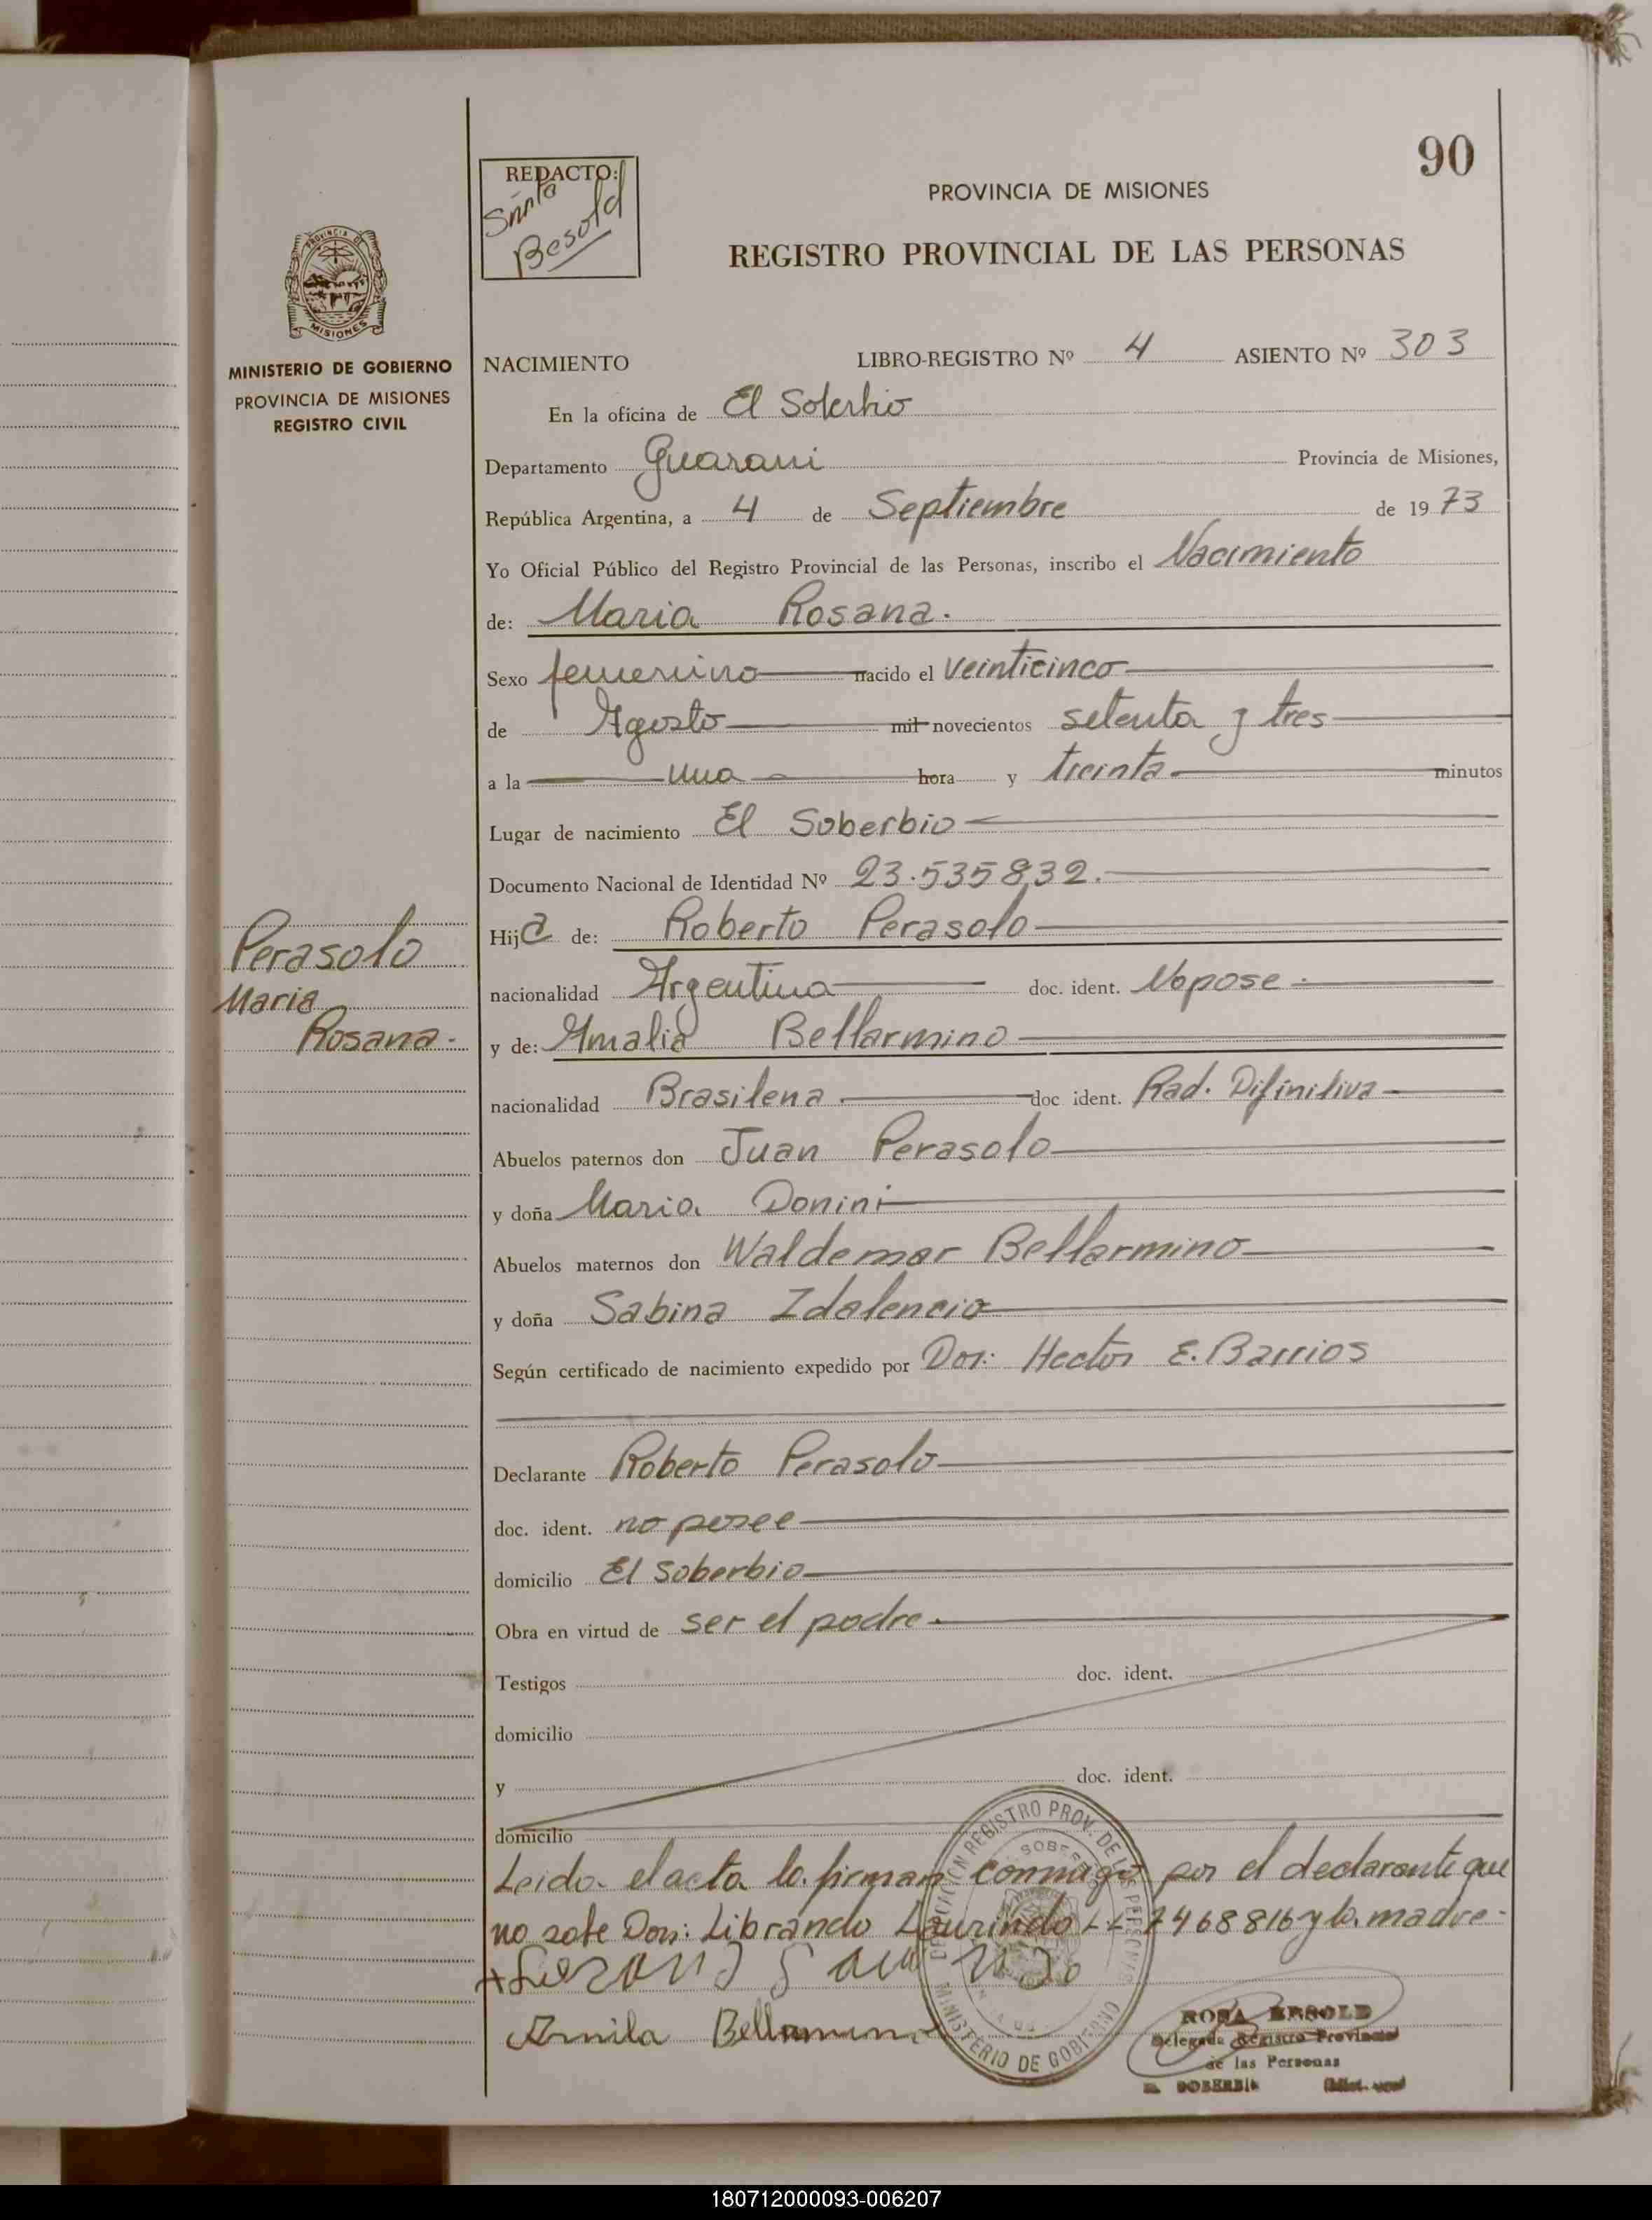 90
REDACTO:
Besold
PROVINCIA DE MISIONES
REGISTRO PROVINCIAL DE LAS PERSONAS
PROVINCIA DE
MISIONES
MINISTERIO DE GOBIERNO
PROVINCIA DE MISIONES
REGISTRO CIVIL
NACIMIENTO LIBRO-REGISTRO Nº 4 ASIENTO Nº 303
En la oficina de El Soberbio
Departamento Guarani Provincia de Misiones,
República Argentina, a 4 de Septiembre de 1973
Yo Oficial Público del Registro Provincial de las Personas, inscribo el Nacimiento
de: Maria Rosana.
Sexo femenino nacido el veinticinco
de Agosto mil novecientos setenta y tres
a la una hora y treinta minutos
Lugar de nacimiento El Soberbio
Documento Nacional de Identidad Nº 23.535832.
Hija de: Roberto Perasolo
Perasolo
Maria
Rosana.
nacionalidad Argentina doc. ident. Nopose
y de: Amalia Bellarmino
nacionalidad Brasilena doc ident. Rad. Difinitiva
Abuelos paternos don Juan Perasolo
y doña Maria Donini
Abuelos maternos don Waldemar Bellarmino
y doña Sabina Idalencio
Según certificado de nacimiento expedido por Don: Hector E. Barrios
Declarante Roberto Perasolo
doc. ident. no posee
domicilio El Soberbio
Obra en virtud de ser el padre.
Testigos doc. ident.
domicilio
y doc. ident.
domicilio
Leida el acta la firman conmigo por el declarante que
no sabe Don: Librando Laurindo L.E 7468816 y la madre-
Bellarmino
REGISTRO PROV. DE LAS PERSONAS
MINISTERIO DE GOBIERNO
ROSA BESOLD
Delegada Registro Provincial
de las Personas
EL SOBERBIO
180712000093-006207